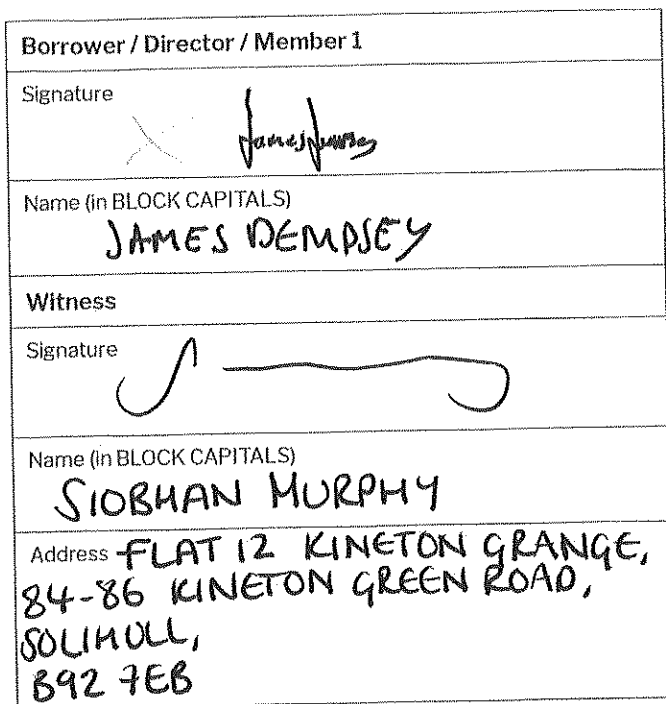 Borrower / Director / Member 1
Signature
James Dempsey
Name (in BLOCK CAPITALS)
JAMES DEMPSEY
Witness
Signature
Name (in BLOCK CAPITALS)
SIOBHAN MURPHY
Address FLAT 12 KINETON GRANGE,
84-86 KINETON GREEN ROAD,
SOLIHULL,
B92 7EB